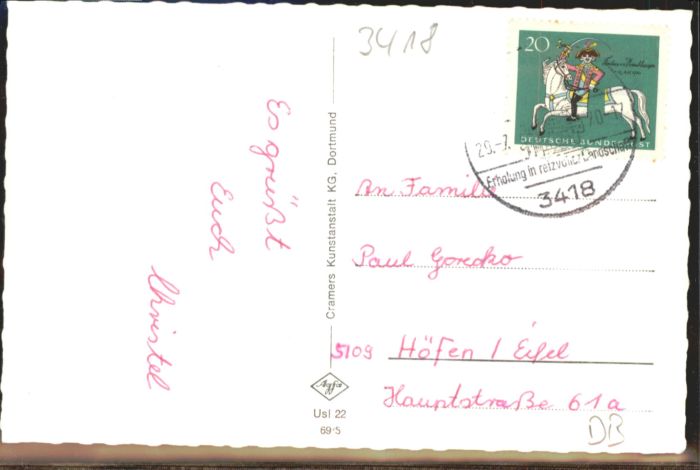 3418
Es grüßt
Euch
Christel
Cramers Kunstanstalt KG, Dortmund
Agfa
Usl 22
69·5
20
DEUTSCHE BUNDESPOST
Erholung in reizvoller Landschaft
3418
An Familie
Paul Goredko
5109 Höfen / Eifel
Hauptstraße 61a
DB